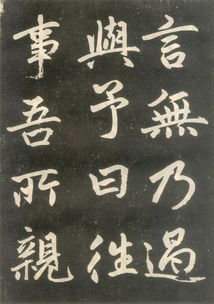 言無乃過
與予日往
事吾所親